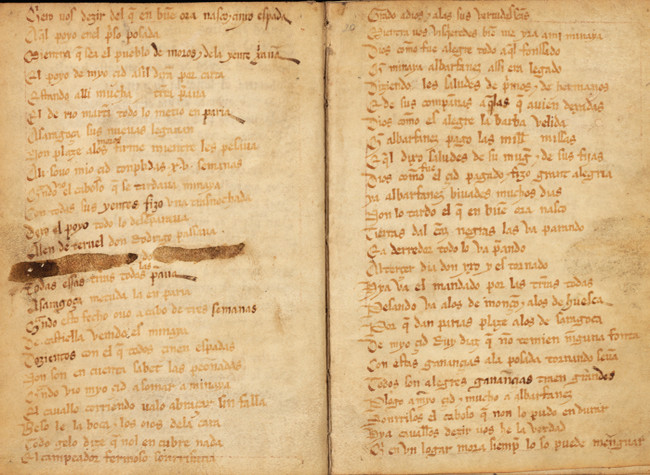 Qero uos dezir del q̃ en bue ora nasco & çinxo espada
Aql poyo enel pso posada
Mientra q̃ sea el pueblo de moros & dela yente xpiana
El poyo de myo çid asil dirã por carta
Estando alli mucha trrª p̃aua
El de rio martin todo lo metio en paria
A saragoça sus nueuas legauan
Non plaze alos moros firme mientre les pesaua
Ali souo mio çid conplidas xv semanas
Qndo el caboso q̃ se tardaua minaya
Con todas sus yentes fizo vna trasnochada
Dexo el poyo todo lo desenparaua
Allen de teruel don Rodrigo passaua
Todas essas trras todas las p̃aua
A saragoça metuda la en paria
Qndo esto fecho ouo a cabo de tres semanas
De castiella venido es minaya
Dozientos con el q̃ todos çinen espadas
Non son en cuenta sabet las peonadas
Qndo vio myo çid asomar a minaya
El cauallo corriendo ualo abraçar sin falla
Beso le la boca & los oios dela cara
Todo gelo dize q̃ nol en cubre nada
El campeador fermoso sonrrisaua
Grado adios & alas sus vertudes sctãs
Mientra uos visqieredes bie me yra ami minaya
Dios como fue alegre todo aql fonssado
Q̃ minaya albarfanez assi era legado
Diziendo les saludes de p̃mos & de hermanos
E de sus compañas aq̃las que auien dexadas
Dios como es alegre la barba velida
Q̃ albarfanez pago las mill missas
E ql dixo saludes de su mugr̃ & de sus fijas
Dios como fue el çid pagado & fizo grant alegria
Ya albarfanez biuades muchos dias
Non lo tardo el q̃ en bue ora nasco
Tierras dal cañz negras las va parando
E a derredor todo lo va p̃ando
Al terçer dia don yxo y es tornado
Hya va el mandado por las trras todas
Pesando va alos de monçon & alos de huesca
Por q̃ dan parias plaze alos de saragoça
De myo çid Ruy diaz q̃ no temien ningũa fonta
Con estas ganançias ala posada tornando seuã
Todos son alegres ganançias traen grandes
Plogo amyo çid & mucho a albarfanez
Sonrrisos el caboso q̃ non lo pudo endurar
Hya caualleros dezir uos he la verdad
Qi en vn logar mora siemp̃ lo so puede menguar